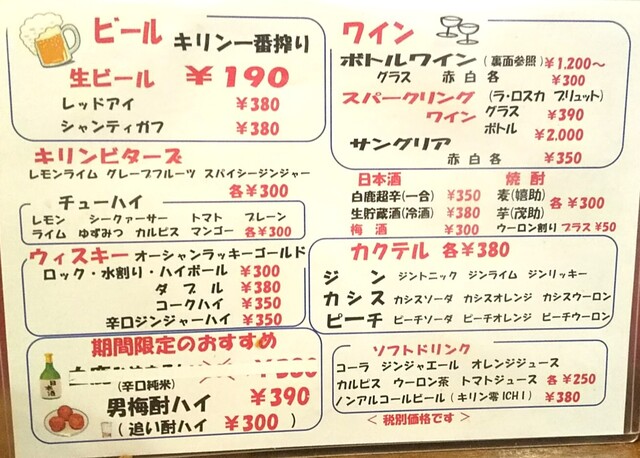 ビール キリン一番搾り
生ビール ¥190
レッドアイ ¥380
シャンティガフ ¥380
キリンビターズ
レモンライム グレープフルーツ スパイシージンジャー
各¥300
チューハイ
レモン シークァーサー トマト プレーン
ライム ゆずみつ カルピス マンゴー 各¥300
ウィスキー オーシャンラッキーゴールド
ロック・水割り・ハイボール ¥300
ダブル ¥380
コークハイ ¥350
辛口ジンジャーハイ ¥350
期間限定のおすすめ
(辛口純米)
男梅酎ハイ ¥390
(追い酎ハイ ¥300 )
ワイン
ボトルワイン (裏面参照) ¥1,200～
グラス 赤 白 各 ¥300
スパークリング (ラ・ロスカ ブリュット)
ワイン グラス ¥390
ボトル ¥2,000
サングリア
赤 白 各 ¥350
日本酒
白鹿超辛(一合) ¥350
生貯蔵酒(冷酒) ¥380
梅 酒 ¥300
焼 酎
麦(嬉助) 各 ¥300
芋(茂助)
ウーロン割り プラス ¥50
カクテル 各¥380
ジン ジントニック ジンライム ジンリッキー
カシス カシスソーダ カシスオレンジ カシスウーロン
ピーチ ピーチソーダ ピーチオレンジ ピーチウーロン
ソフトドリンク
コーラ ジンジャエール オレンジジュース
カルピス ウーロン茶 トマトジュース 各 ¥250
ノンアルコールビール (キリン零ICHI) ¥380
< 税別価格です >